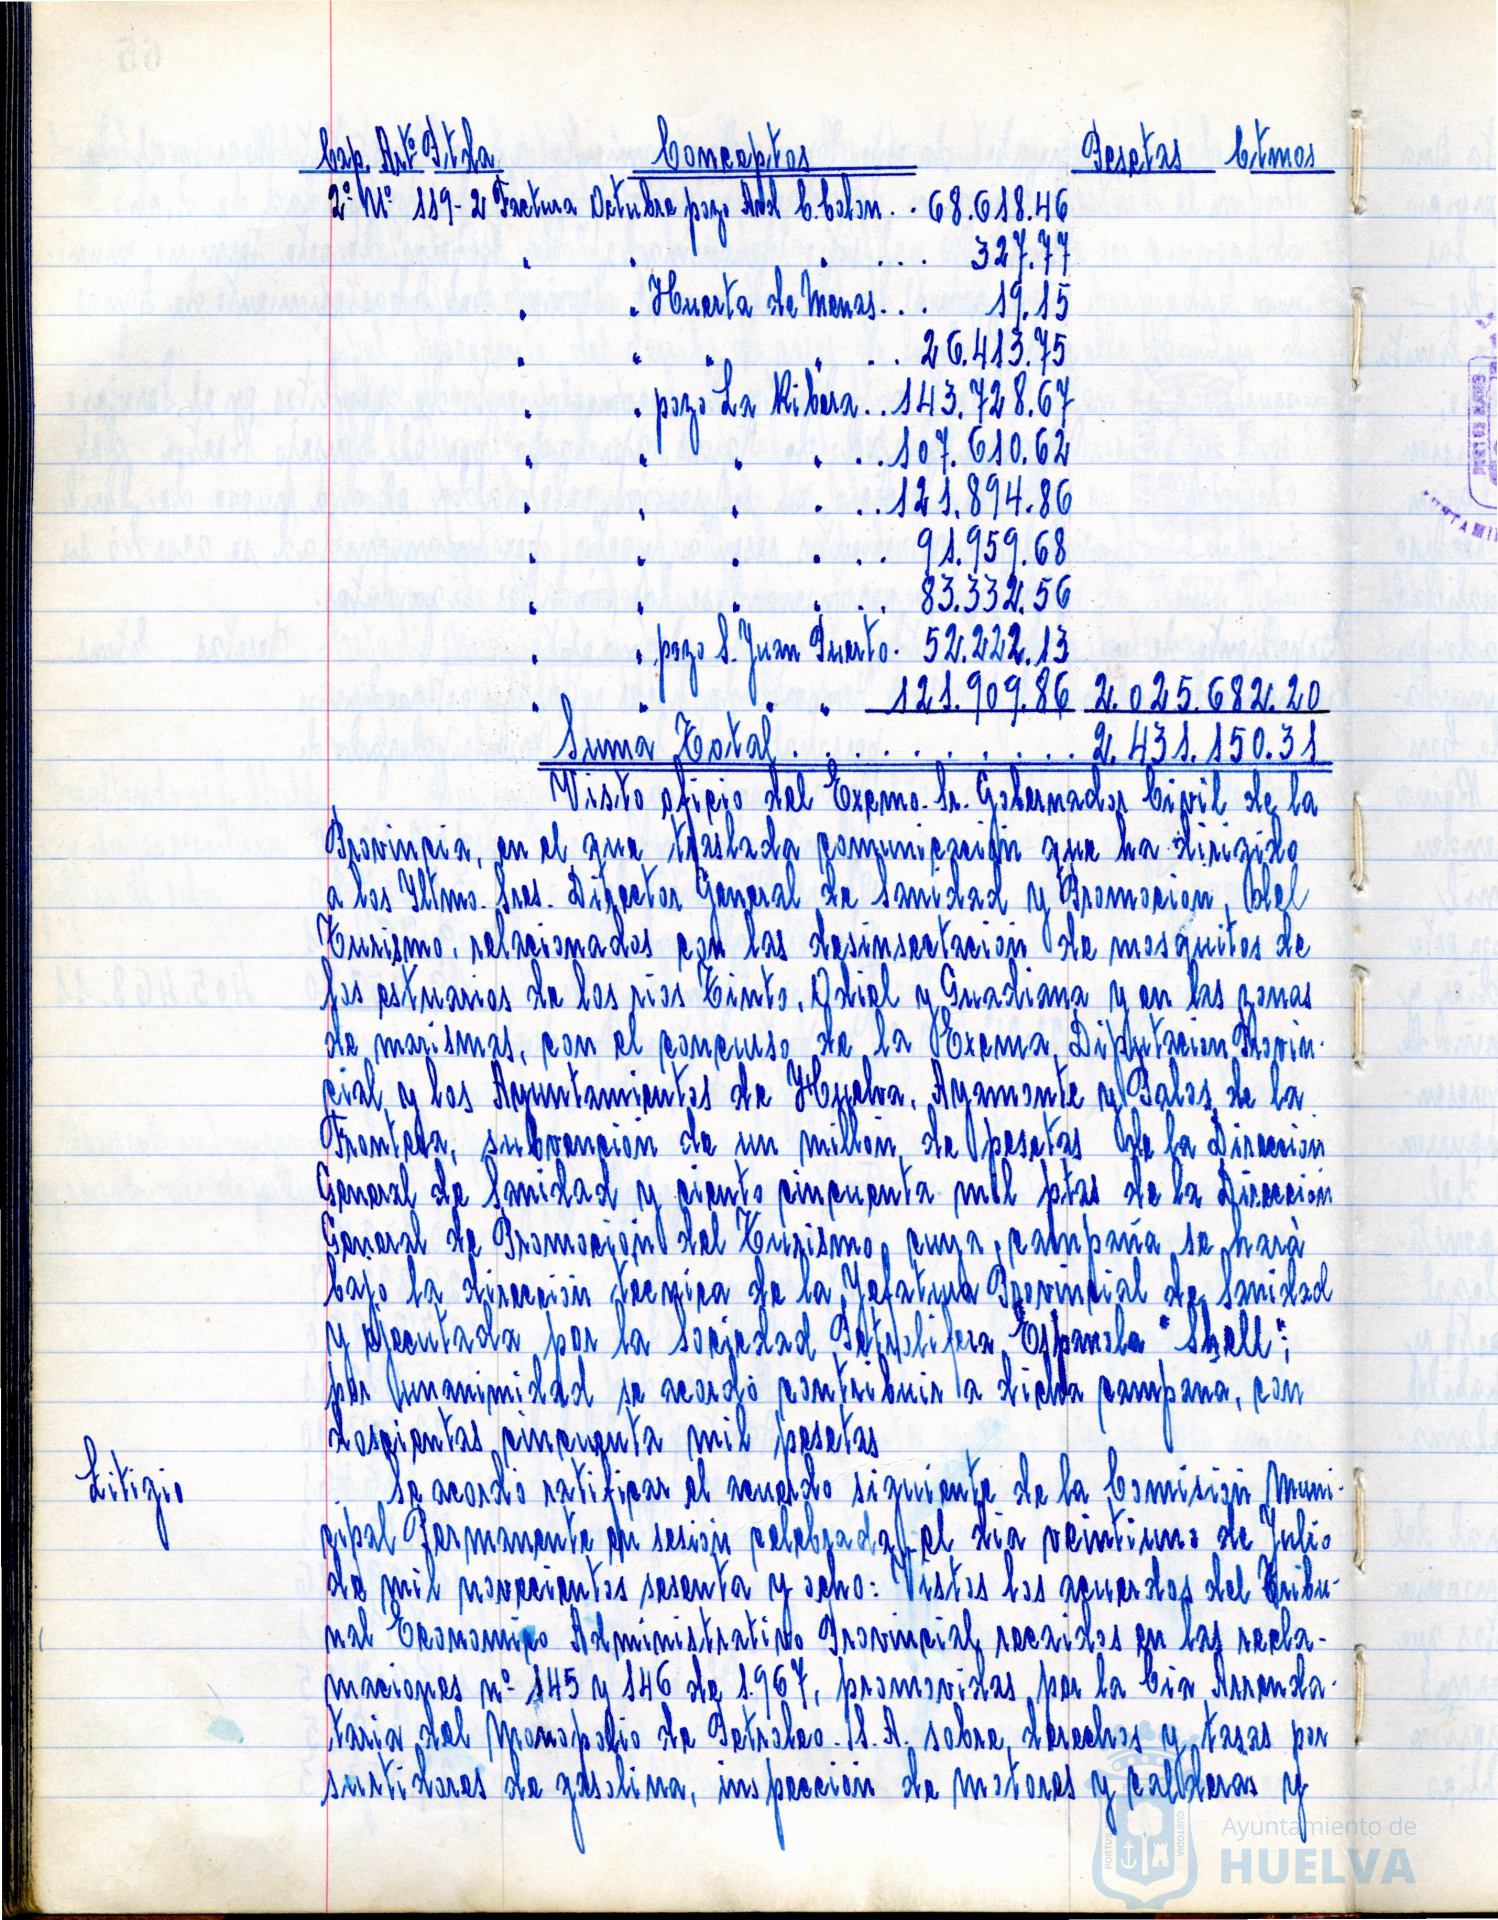 Cap. Artº Ptda Conceptos Pesetas Ctmos
2º Uº 119-2 Factura Octubre pozo Avd C. Colon.. 68.618.46
" " " .... 327.77
" " Huerta de Menas... 19.15
" " " " .. 26.413.75
" " pozo La Ribera.. 143.728.67
" " " " .. 107.610.62
" " " " .. 121.894.86
" " " " .. 91.959.68
" " " " .. 83.332.56
" " pozo S. Juan Puerto. 52.222.13
" " " " 121.909.86 2.025.682.20
Suma Total . . . . . . . . . . . 2.431.150.31
Visto oficio del Excmo. Sr. Gobernador Civil de la
Provincia, en el que traslada comunicación que ha dirigido
a los Iltmo. Sres. Director General de Sanidad y Promocion, del
Turismo, relacionados con las desinsectación de mosquitos de
los estuarios de los rios Tinto, Odiel y Guadiana y en las zonas
de marismas, con el concurso de la Excma, Diputacion Provin-
cial y los Ayuntamientos de Huelva, Ayamonte y Palos de la
Frontera, subvención de un millon de pesetas de la Direccion
General de Sanidad y ciento cincuenta mil ptas de la Dirección
General de Promoción del Turismo, cuya campaña se hará
bajo la dirección tecnica de la Jefatura Provincial de Sanidad
y ejecutada por la Sociedad Petrolifera Española "Shell";
por unanimidad se acordó contribuir a dicha campana, con
doscientas cincuenta mil pesetas
Litigio
Se acordó ratificar el acuerdo siguiente de la Comisión Muni-
cipal Permanente en sesión celebrada el dia veintiuno de Julio
de mil novecientos sesenta y ocho: Vistos los acuerdos del Tribu-
nal Economico Administrativo Provincial, recaidos en las recla-
maciones nº 145 y 146 de 1.967, promovidas por la Cia Arrenda-
taria del Monopolio de Petroleo. S.A. sobre, derechos y tasas por
surtidores de gasolina, inspección de motores y calderas y
Ayuntamiento de
HUELVA